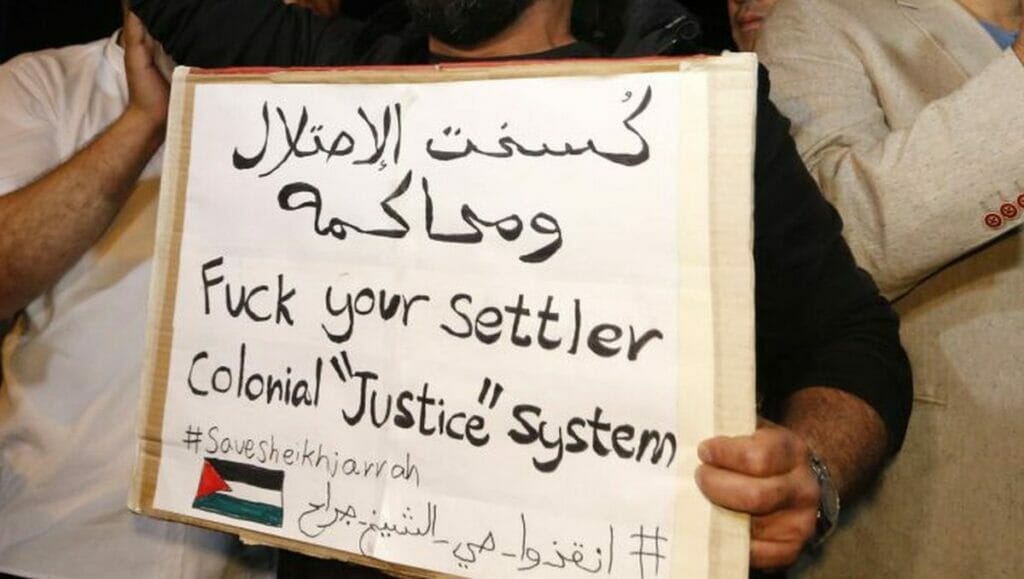 كُسخت الإحتلال
ومحاكمه
Fuck your Settler
Colonial "Justice" System
#Savesheikhjarrah
# انقذوا_حي_الشيخ_جراح